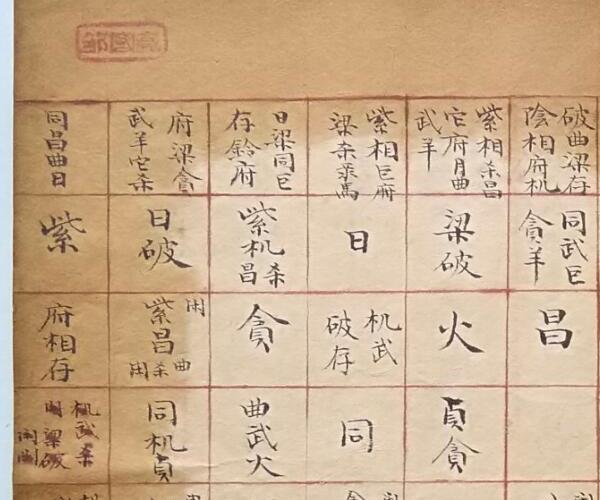 破曲梁存
陰相府机
紫相杀昌
它府月曲
武羊
紫相巨府
梁杀
馬
日梁同巨
存鈴府
府梁貪
武羊它杀
同昌曲日
同武巨
貪羊
梁破
日
杀
紫机昌
日破
紫
昌
火
机武
破存
貪
曲
紫昌杀
府相存
貞貪
同
曲武火
同机貞
机武杀
梁破